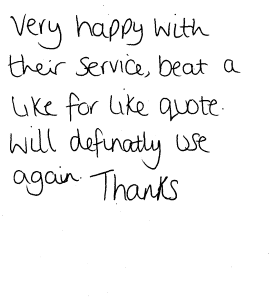 Very happy with
their service, beat a
like for like quote.
Will definatly use
again. Thanks